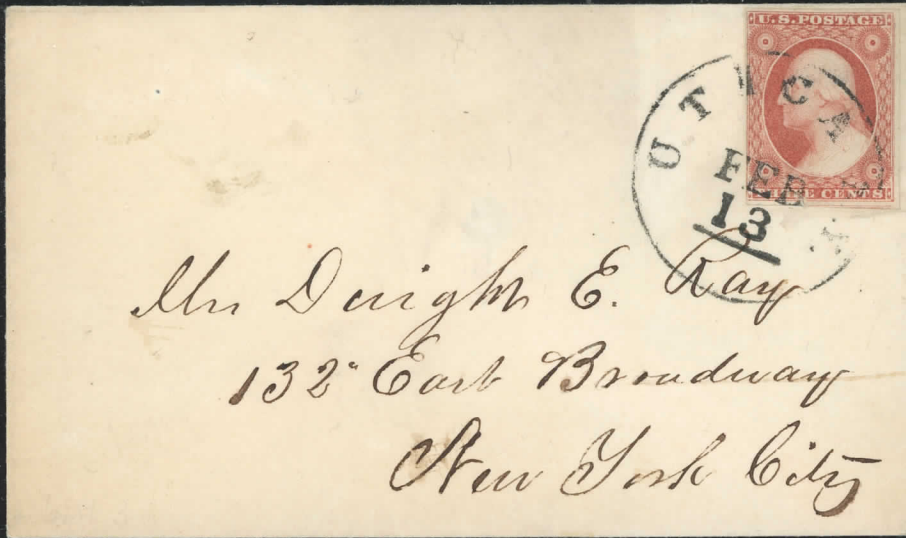 U.S. POSTAGE
THREE CENTS
UTICA N.Y.
FEB
13
Mr Dwight E. Ray
132 East Broadway
New York City